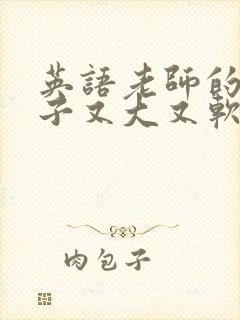 英語老師的
子又大又軟
肉包子